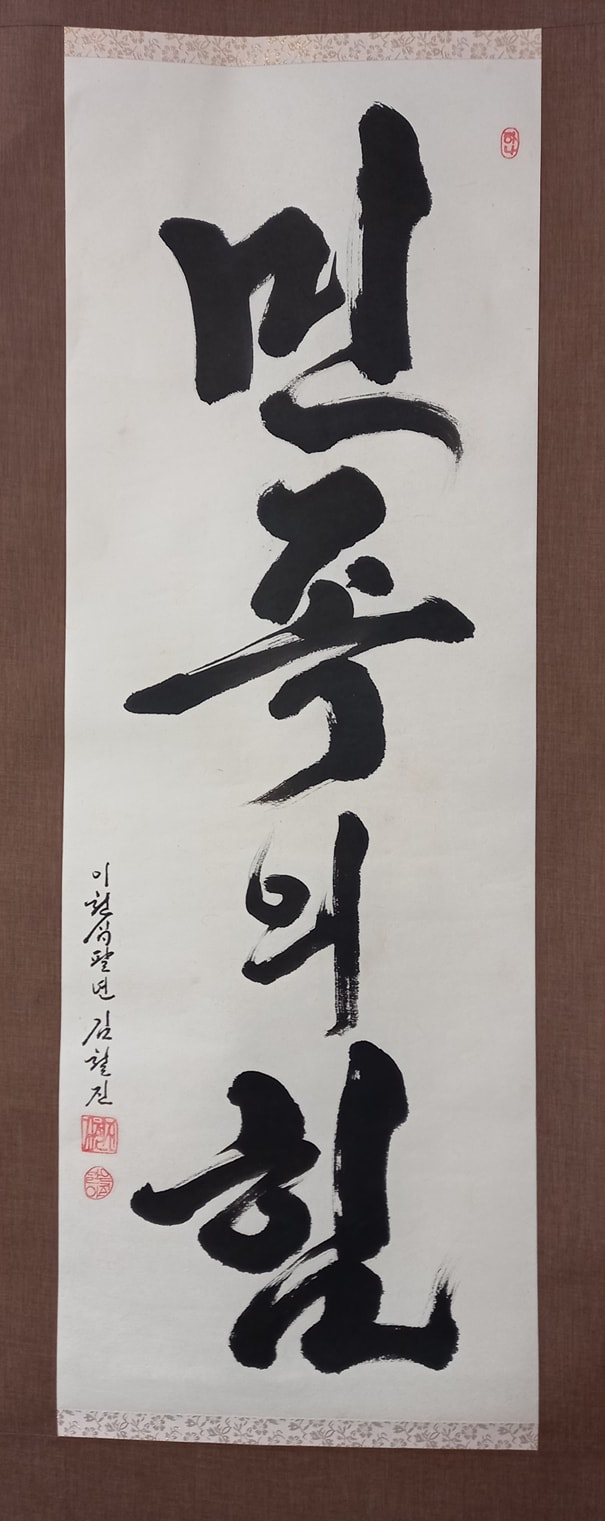 민족의힘
이천십팔년 김철진
하나